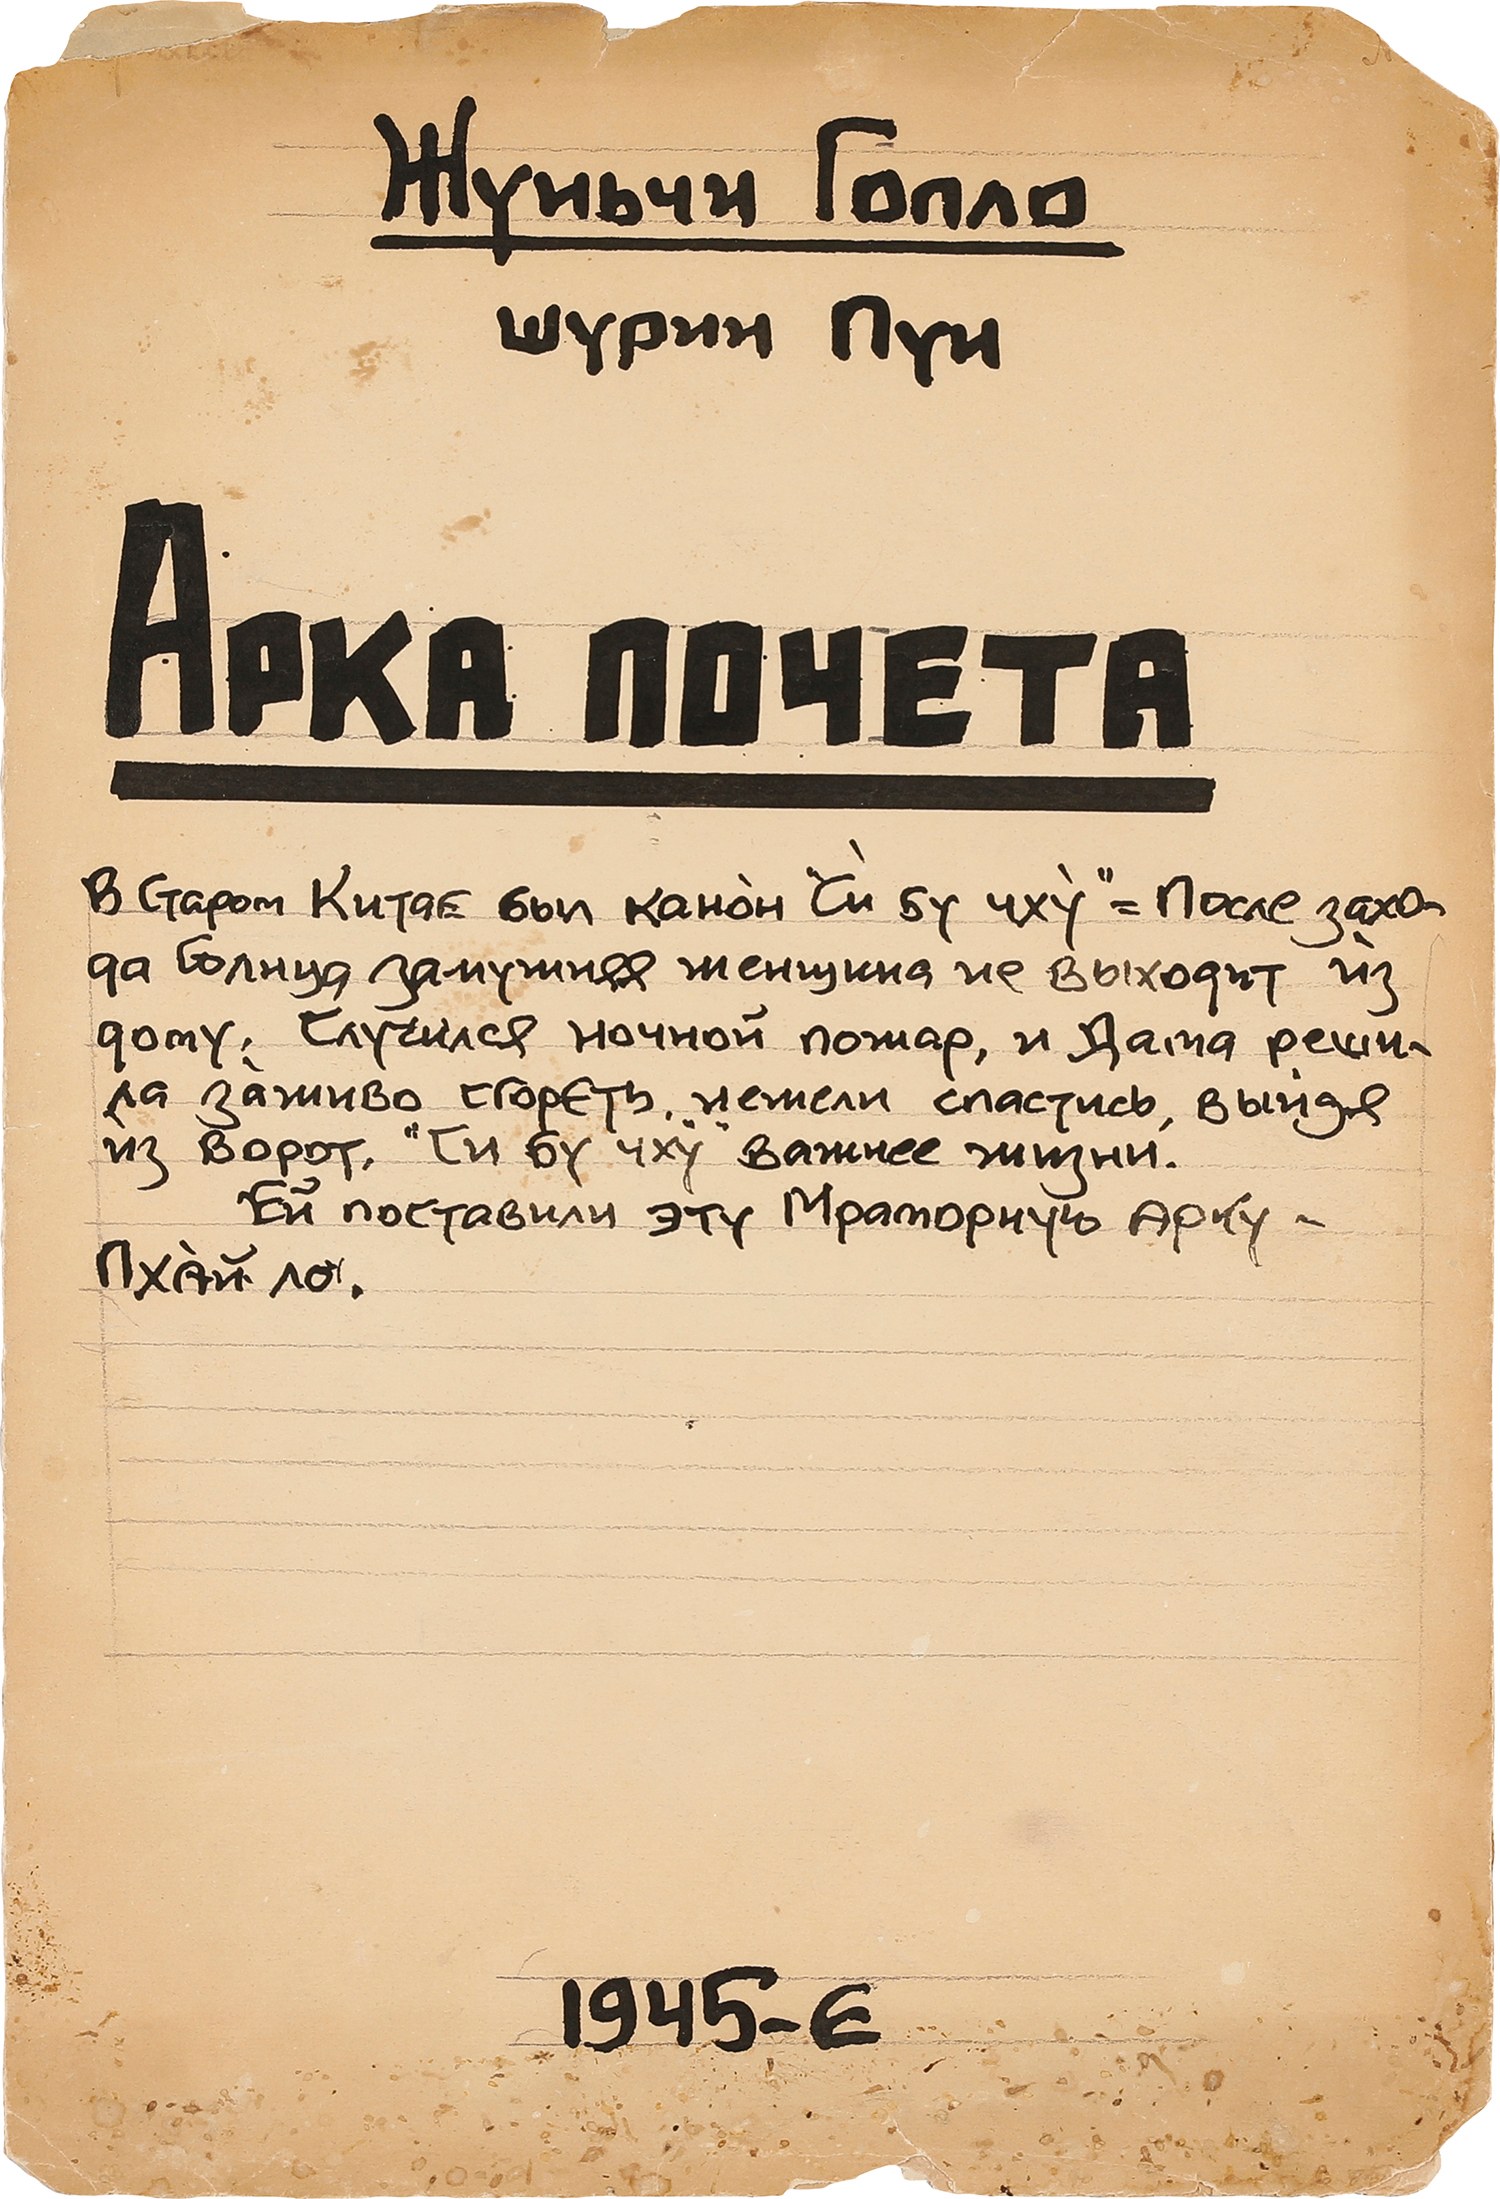 Жуньчи Гопло
шурин Пуи
АРКА ПОЧЕТА
В Старом Китае был канòн "Си̇̀ бу чхỳ" = После захо-
да Солнца замужняя женщина не выходит ѝз
дому. Случился ночной пожар, и Дама реши-
ла зàживо сгореть, нежели спастись, выйдя
из ворот. "Си бу чху" важнее жизни.
Ей поставили эту Мраморную Арку -
Пхàй ло.
1945-Е